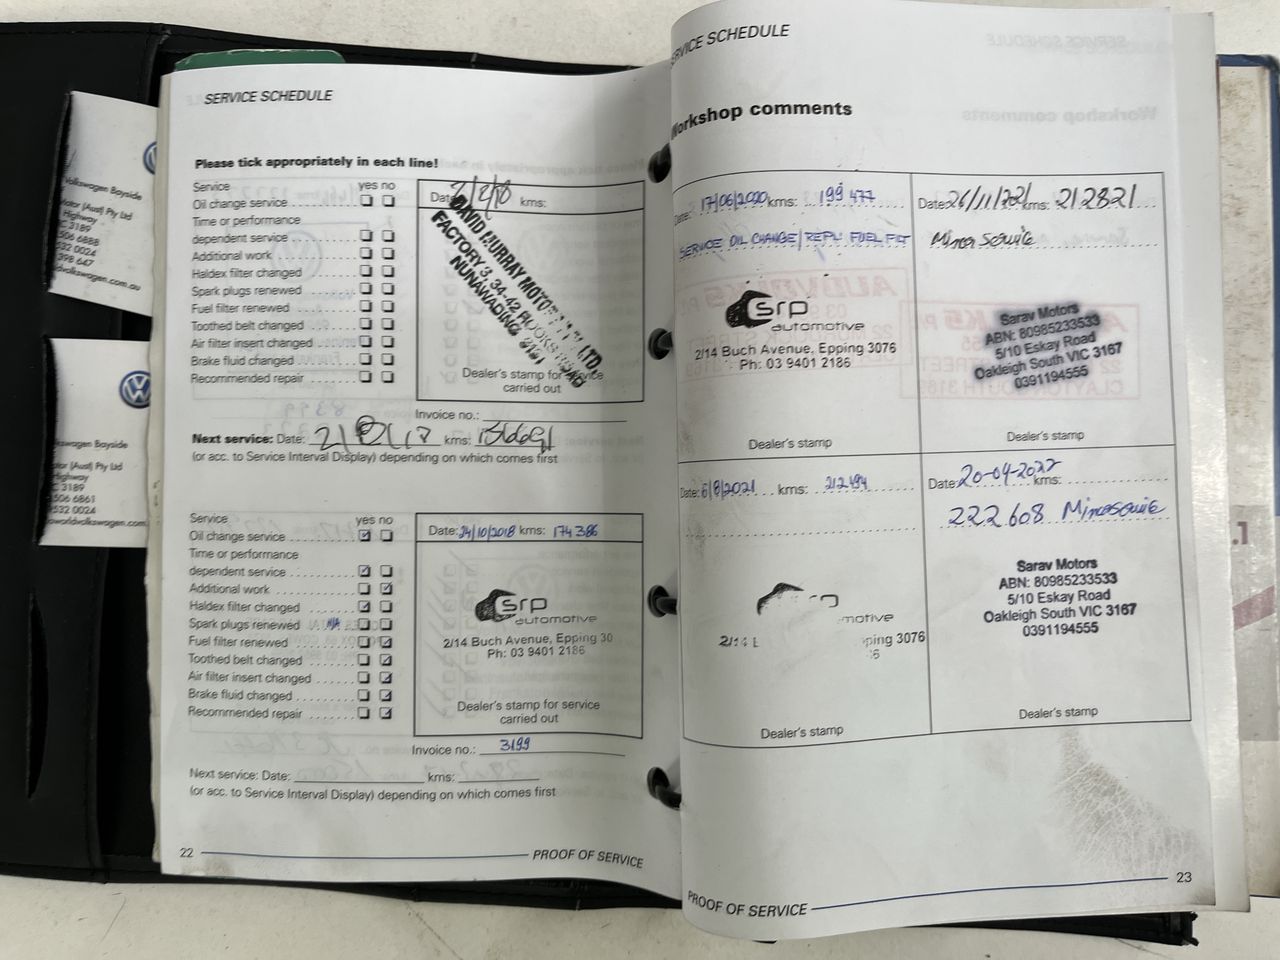 Volkswagen Bayside
Motor (Aust) Pty Ltd
Highway
C 3189
506 6888
532 0024
398 647
dvolkswagen.com.au
kswagen Bayside
tor (Aust) Pty Ltd
Highway
C 3189
506 6861
532 0024
oworldvolkswagen.com
SERVICE SCHEDULE
Please tick appropriately in each line!
Service yes no
Oil change service
Time or performance
dependent service
Additional work
Haldex filter changed
Spark plugs renewed
Fuel filter renewed
Toothed belt changed
Air filter insert changed
Brake fluid changed
Recommended repair
Date: 2/2/18 kms:
DAVID MURRAY MOTOR
LTD.
FACTORY 3, 34-42 ROOKS ROAD
NUNAWADING 3131
Dealer's stamp for service
carried out
Invoice no.:
Next service: Date: kms:
(or acc. to Service Interval Display) depending on which comes first
Service yes no
Oil change service
Time or performance
dependent service
Additional work
Haldex filter changed
Spark plugs renewed N/A
Fuel filter renewed
Toothed belt changed
Air filter insert changed
Brake fluid changed
Recommended repair
Date: 24/10/2018 kms: 174386
srp
automotive
2/14 Buch Avenue, Epping 30
Ph: 03 9401 2186
Dealer's stamp for service
carried out
Invoice no.: 3199
Next service: Date: kms:
(or acc. to Service Interval Display) depending on which comes first
22 PROOF OF SERVICE
RVICE SCHEDULE
Workshop comments
Date: 17/06/2020 kms: 199 477
SERVICE OIL CHANGE/REPL. FUEL FILT
srp
automotive
2/14 Buch Avenue, Epping 3076
Ph: 03 9401 2186
Dealer's stamp
Date: 26/11/2021 kms: 212821
Minor Service
Sarav Motors
ABN: 80985233533
5/10 Eskay Road
Oakleigh South VIC 3167
0391194555
Dealer's stamp
Date: 6/8/2021 kms: 212494
motive
2/14 ping 3076
6
Dealer's stamp
Date: 20-04-2022 kms:
222608 Minor Service
Sarav Motors
ABN: 80985233533
5/10 Eskay Road
Oakleigh South VIC 3167
0391194555
Dealer's stamp
PROOF OF SERVICE 23
.1